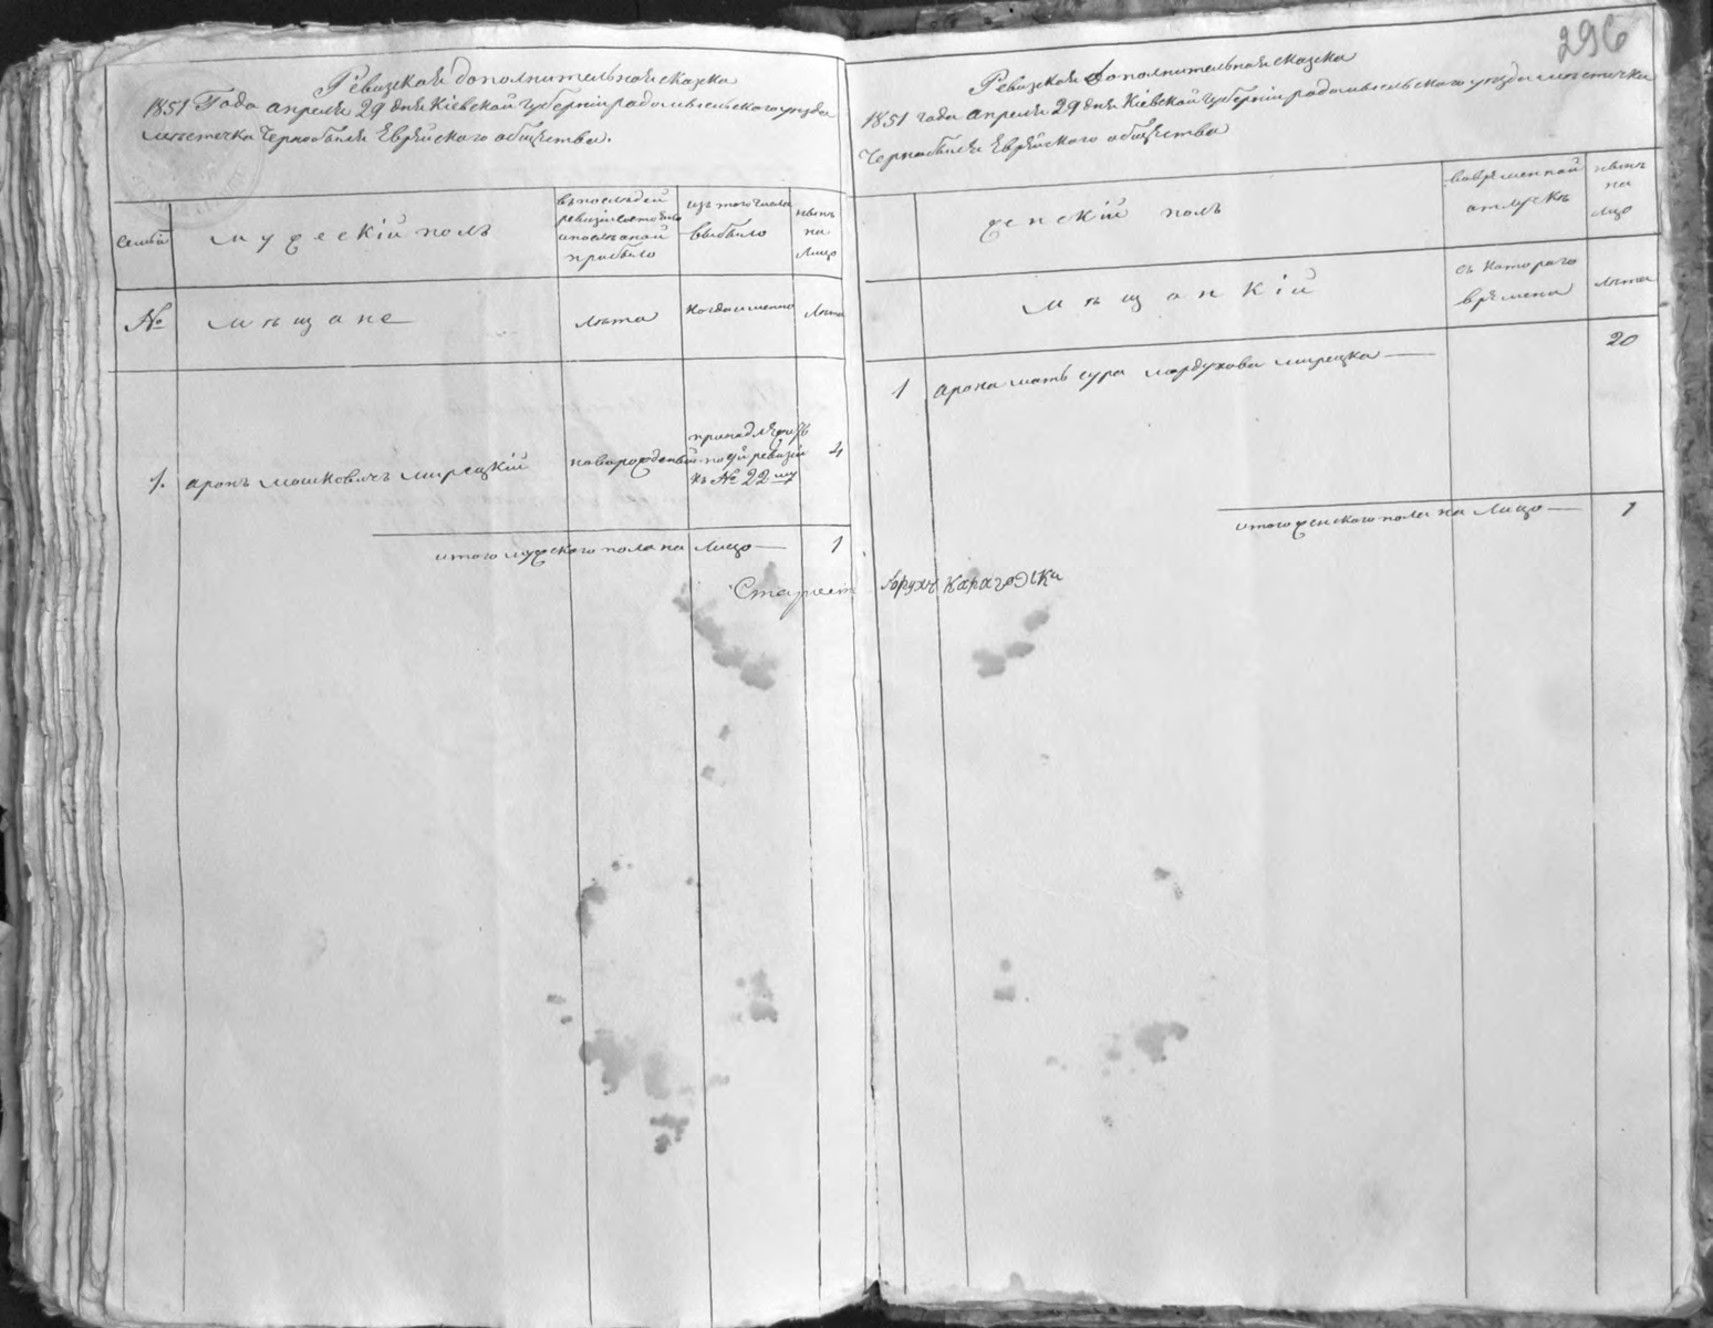 296
Ревизская дополнительная сказка
1851 Года апреля 29 дня Кіевской губерніи радомысльского уезда
местечка Чернобиля Еврейского общества.
Семьи
мужескій полъ
въ последней
ревизіи состояло
и после оной
прибыло
изъ того числа
выбыло
ныне
на
лицо
№
мещане
лета
когда именно
лета
1. аронъ мошковичъ мирецкій
новорожденый
принадлежить
по 9й ревизіи
къ № 22му
4
итого мужского пола на лицо — 1
Ревизская дополнительная сказка
1851 года апреля 29 дня Кіевской губерніи радомысльского уезда местечка
Чернобиля Еврейского общества
женскій полъ
во временной
отлучке
ныне
на
лицо
мещанкій
съ котораго
времени
лета
1 арона мать сура мордухова мирецка — 20
итого женского пола на лицо — 1
Старост